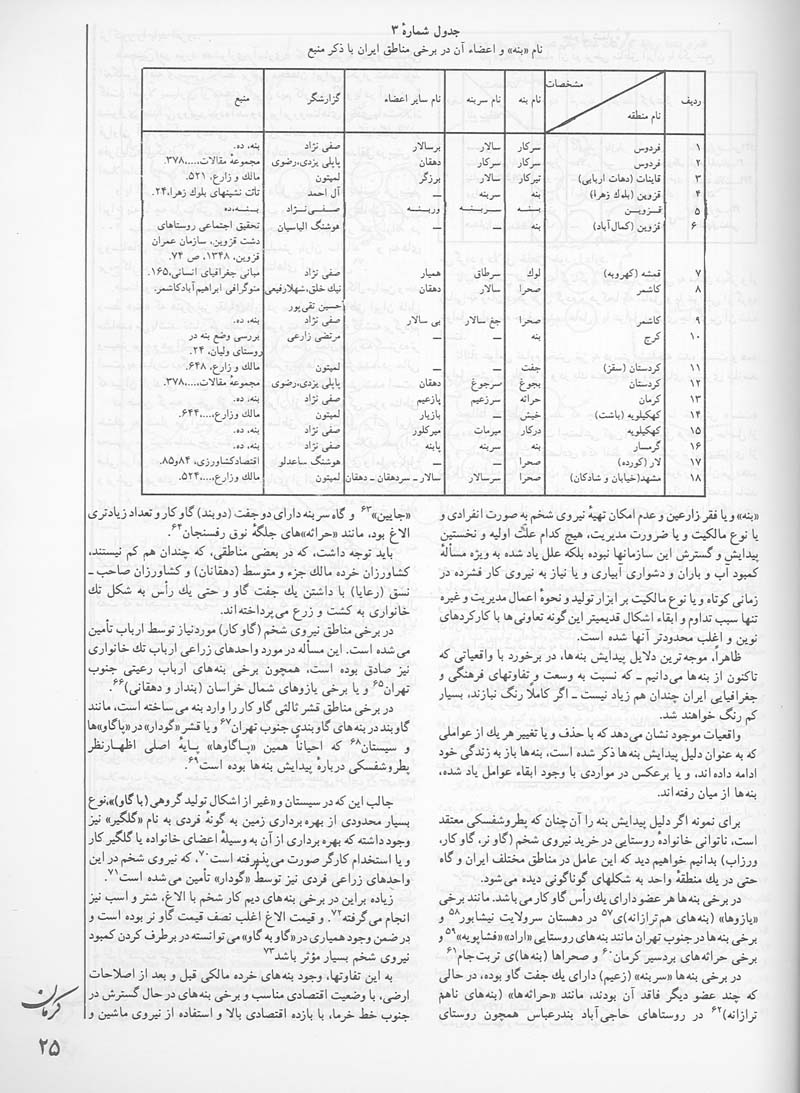 جدول شمارهٔ ۳
نام «بنه» و اعضاء آن در برخی مناطق ایران با ذکر منبع
ردیف مشخصات نام منطقه نام بنه نام سربنه نام سایر اعضاء گزارشگر منبع
۱ فردوس سرکار سالار برسالار صفی نژاد بنه، ده.
۲ فردوس سرکار سرکار دهقان پاپلی یزدی،رضوی مجموعهٔ مقالات،...،۳۷۸.
۳ قاینات (دهات اربابی) تیرکار سالار برزگر لمبتون مالک و زارع، ۵۲۱.
۴ قزوین (بلوك زهرا) بنه سربنه — آل احمد تات نشینهای بلوك زهرا،۲۴.
۵ قزوین بنه سربنه وربنه صفی نژاد بنه،ده
۶ قزوین (کمال آباد) بنه — — هوشنگ الیاسیان تحقیق اجتماعی روستاهای
دشت قزوین، سازمان عمران
قزوین، ۱۳۴۸، ص ۷۴.
۷ قمشه (کهرویه) لوك سرطاق همیار صفی نژاد مبانی جغرافیای انسانی،۱۶۵.
۸ کاشمر صحرا سالار دهقان نیك خلق،شهلارفیعی منوگرافی ابراهیم آبادکاشمر.
حسین تقی پور
۹ کاشمر صحرا جغ سالار بی سالار صفی نژاد بنه، ده.
۱۰ کرج بنه — — مرتضی زارعی بررسی وضع بنه در
روستای ولیان، ۲۴.
۱۱ کردستان (سقز) جفت — — لمبتون مالك و زارع، ۶۴۸.
۱۲ کردستان بجوغ سرجوغ دهقان پاپلی یزدی،رضوی مجموعهٔ مقالات،...،۳۷۸.
۱۳ کرمان حراثه سرزعیم پازعیم صفی نژاد بنه، ده.
۱۴ کهکیلویه (باشت) خیش — بازیار لمبتون مالك وزارع،...،۶۴۴.
۱۵ کهکیلویه درکار میرمات میرکلور صفی نژاد بنه، ده.
۱۶ گرمسار بنه سربنه پابنه صفی نژاد بنه، ده.
۱۷ لار (کورده) صحرا — — هوشنگ ساعدلو اقتصادکشاورزی، ۸۴و۸۵.
۱۸ مشهد(خیابان و شادکان) صحرا سرسالار سالار ــ سردهقان ــ دهقان لمبتون مالك وزارع،...،۵۲۴.
«بنه» و یا فقر زارعین و عدم امکان تهیهٔ نیروی شخم به صورت انفرادی و
یا نوع مالکیت و یا ضرورت مدیریت، هیچ کدام علّت اولیه و نخستین
پیدایش و گسترش این سازمانها نبوده بلکه علل یاد شده به ویژه مسألهٔ
کمبود آب و باران و دشواری آبیاری و یا نیاز به نیروی کار فشرده در
زمانی کوتاه و یا نوع مالکیت بر ابزار تولید و نحوهٔ اعمال مدیریت و غیره
تنها سبب تداوم و ابقاء اشکال قدیمیتر این گونه تعاونی‌ها با کارکردهای
نوین و اغلب محدودتر آنها شده است.
ظاهراً، موجه‌ترین دلایل پیدایش بنه‌ها، در برخورد با واقعیاتی که
تاکنون از بنه‌ها می‌دانیم ــ که نسبت به وسعت و تفاوتهای فرهنگی و
جغرافیایی ایران چندان هم زیاد نیست ــ اگر کاملاً رنگ نبازند، بسیار
کم رنگ خواهند شد.
واقعیات موجود نشان می‌دهد که با حذف و یا تغییر هر یك از عواملی
که به عنوان دلیل پیدایش بنه‌ها ذکر شده است، بنه‌ها باز به زندگی خود
ادامه داده‌اند، و یا برعکس در مواردی با وجود ابقاء عوامل یاد شده،
بنه‌ها از میان رفته‌اند.
برای نمونه اگر دلیل پیدایش بنه را آن‌چنان که پطروشفسکی معتقد
است، ناتوانی خانوادهٔ روستایی در خرید نیروی شخم (گاو نر، گاو کار،
ورزاب) بدانیم خواهیم دید که این عامل در مناطق مختلف ایران و گاه
حتی در یك منطقهٔ واحد به شکلهای گوناگونی دیده می‌شود.
در برخی بنه‌ها هر عضو دارای یك رأس گاو کار می‌باشد. مانند برخی
«یازوها» (بنه‌های هم ترازانه)ی۵۷ در دهستان سرولایت نیشابور۵۸ و
برخی بنه‌ها در جنوب تهران مانند بنه‌های روستایی «اراد» «فشاپویه»۵۹ و
برخی حراثه‌های بردسیر کرمان۶۰ و صحراها (بنه‌ها)ی تربت‌جام۶۱
در برخی بنه‌ها «سربنه» (زعیم) دارای یك جفت گاو بوده، در حالی
که چند عضو دیگر فاقد آن بودند، مانند «حراثه‌ها» (بنه‌های ناهم
ترازانه)۶۲ در روستاهای حاجی‌آباد بندرعباس همچون روستای
«جایین»۶۳ و گاه سربنه دارای دو جفت (دوبند) گاو کار و تعداد زیادتری
الاغ بود، مانند «حراثه»های جلگهٔ نوق رفسنجان۶۴.
باید توجه داشت، که در بعضی مناطقی، که چندان هم کم نیستند،
کشاورزان خرده مالك جزء و متوسط (دهقانان) و کشاورزان صاحب ــ
نسق (رعایا) با داشتن یك جفت گاو و حتی یك رأس به شکل تك
خانواری به کشت و زرع می‌پرداخته‌اند.
در برخی مناطق نیروی شخم (گاو کار) موردنیاز توسط ارباب تأمین
می‌شده است. این مسأله در مورد واحدهای زراعی ارباب تك خانواری
نیز صادق بوده است، همچون برخی بنه‌های ارباب رعیتی جنوب
تهران۶۵ و یا برخی یازوهای شمال خراسان (بندار و دهقانی)۶۶.
در برخی مناطق قشر ثالثی گاو کار را وارد بنه می‌ساخته است، مانند
گاوبند در بنه‌های گاوبندی جنوب تهران۶۷ و یا قشر «گودار» در «پاگاو»ها
و سیستان۶۸ که احیاناً همین «پاگاوها» پایهٔ اصلی اظهارنظر
پطروشفسکی دربارهٔ پیدایش بنه‌ها بوده است۶۹.
جالب این که در سیستان و «غیر از اشکال تولید گروهی (پا گاو)»،نوع
بسیار محدودی از بهره برداری زمین به گونهٔ فردی به نام «گلگیر» نیز
وجود داشته که بهره برداری از آن به وسیلهٔ اعضای خانواده یا گلگیر کار
و یا استخدام کارگر صورت می‌پذیرفته است۷۰، که نیروی شخم در این
واحدهای زراعی فردی نیز توسط «گودار» تأمین می‌شده است۷۱.
زیاده براین در برخی بنه‌های دیم کار شخم با الاغ، شتر و اسب نیز
انجام می‌گرفته۷۲. و قیمت الاغ اغلب نصف قیمت گاو نر بوده است و
در ضمن وجود همیاری در «گاو به گاو» می‌توانسته در برطرف کردن کمبود
نیروی شخم بسیار مؤثر باشد۷۳
به این تفاوتها، وجود بنه‌های خرده مالکی قبل و بعد از اصلاحات
ارضی، با وضعیت اقتصادی مناسب و برخی بنه‌های در حال گسترش در
جنوب خط خرما، با بازده اقتصادی بالا و استفاده از نیروی ماشین و
کرمان
۲۵